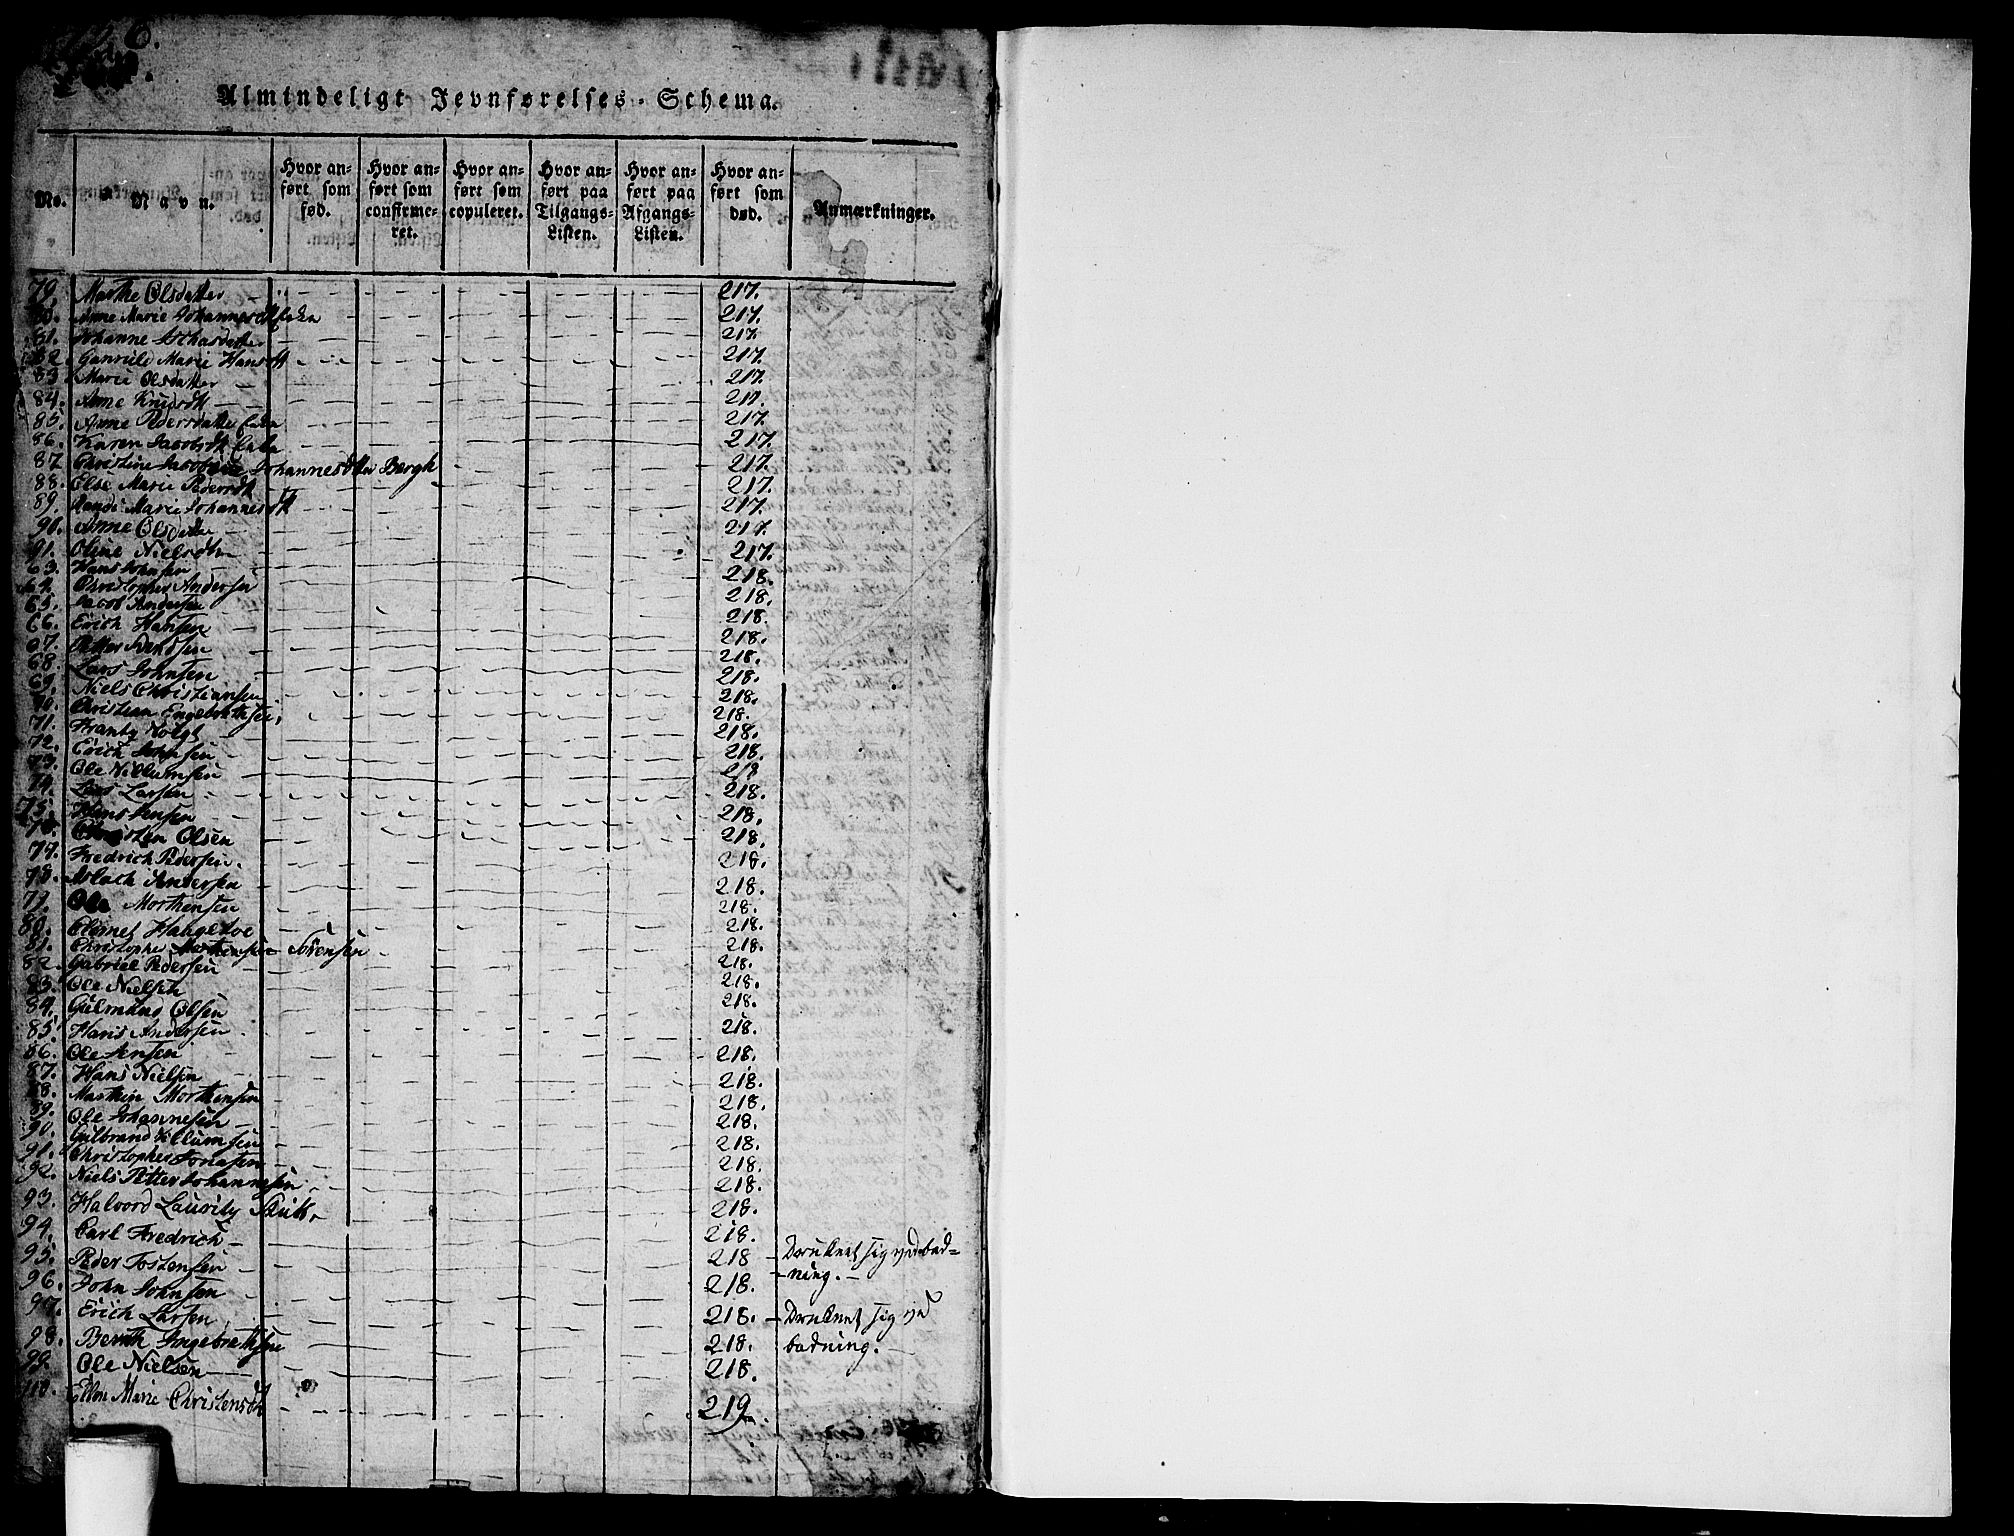 Almindeligt Jevnførelses-Schema.
No. Navn. Hvor anført som fød. Hvor anført som confirmeret. Hvor anført som copuleret. Hvor anført paa Tilgangs-Listen. Hvor anført paa Afgangs-Listen. Hvor anført som død. Anmærkninger.
79. Marthe Olsdatter 217.
80. Anne Marie 217.
81. Johanne 217.
82. Marie Hansdt 217.
83. Marie Olsdatter 217.
84. Anne Knudsdt 217.
85. Anne Pedersdatter 217.
86. Karen Jacobsdt 217.
87. Christine Johannesdtter Bergh 217.
88. Else Marie Pedersdt 217.
89. Randi Marie Johannesdt 217.
90. Anne Olsdatter 217.
91. Oline Nielsdtr 217.
63. Hans 218.
64. Christopher Andersen 218.
65. Jacob Andersen 218.
66. Erich Hansen 218.
67. Petter Svendsen 218.
68. Lars Johnsen 218.
69. Niels Christiansen 218.
70. Christian Engebrethsen 218.
71. Frantz 218.
72. Erich Johnsen 218.
73. Ole Nillumsen 218
74. Lars Larsen 218.
75. Hans Jensen 218.
76. Christen Olsen 218.
77. Fredrich Pedersen. 218.
78. Aslach Andersen 218.
79. Ole Morthensen 218.
80. Clemet Haugetoe 218.
81. Christopher Morthensen Sørensen 218.
82. Gabriel Pedersen 218.
83. Ole Nielsen 218.
84. Gulmund Olsen 218.
85. Hans Andersen 218.
86. Ole Jensen 218.
87. Hans Nielsen 218.
88. Morthensen 218.
89. Ole Johannesen 218.
90. Gulbrand 218.
91. Christopher Jonasen 218.
92. Niels Petter Johannesen 218.
93. Halvord Lauritz 218.
94. Carl Fredrich 218.
95. Peder Tostensen 218 Druknet sig ved bad=
96. John Johnsen 218. ning.
97. Erich Larsen 218. Druknet sig ved
98. Bernth Ingebrethsen 218. badning.
99. Ole Nielsen 218.
Ellen Marie Christensdt 219.